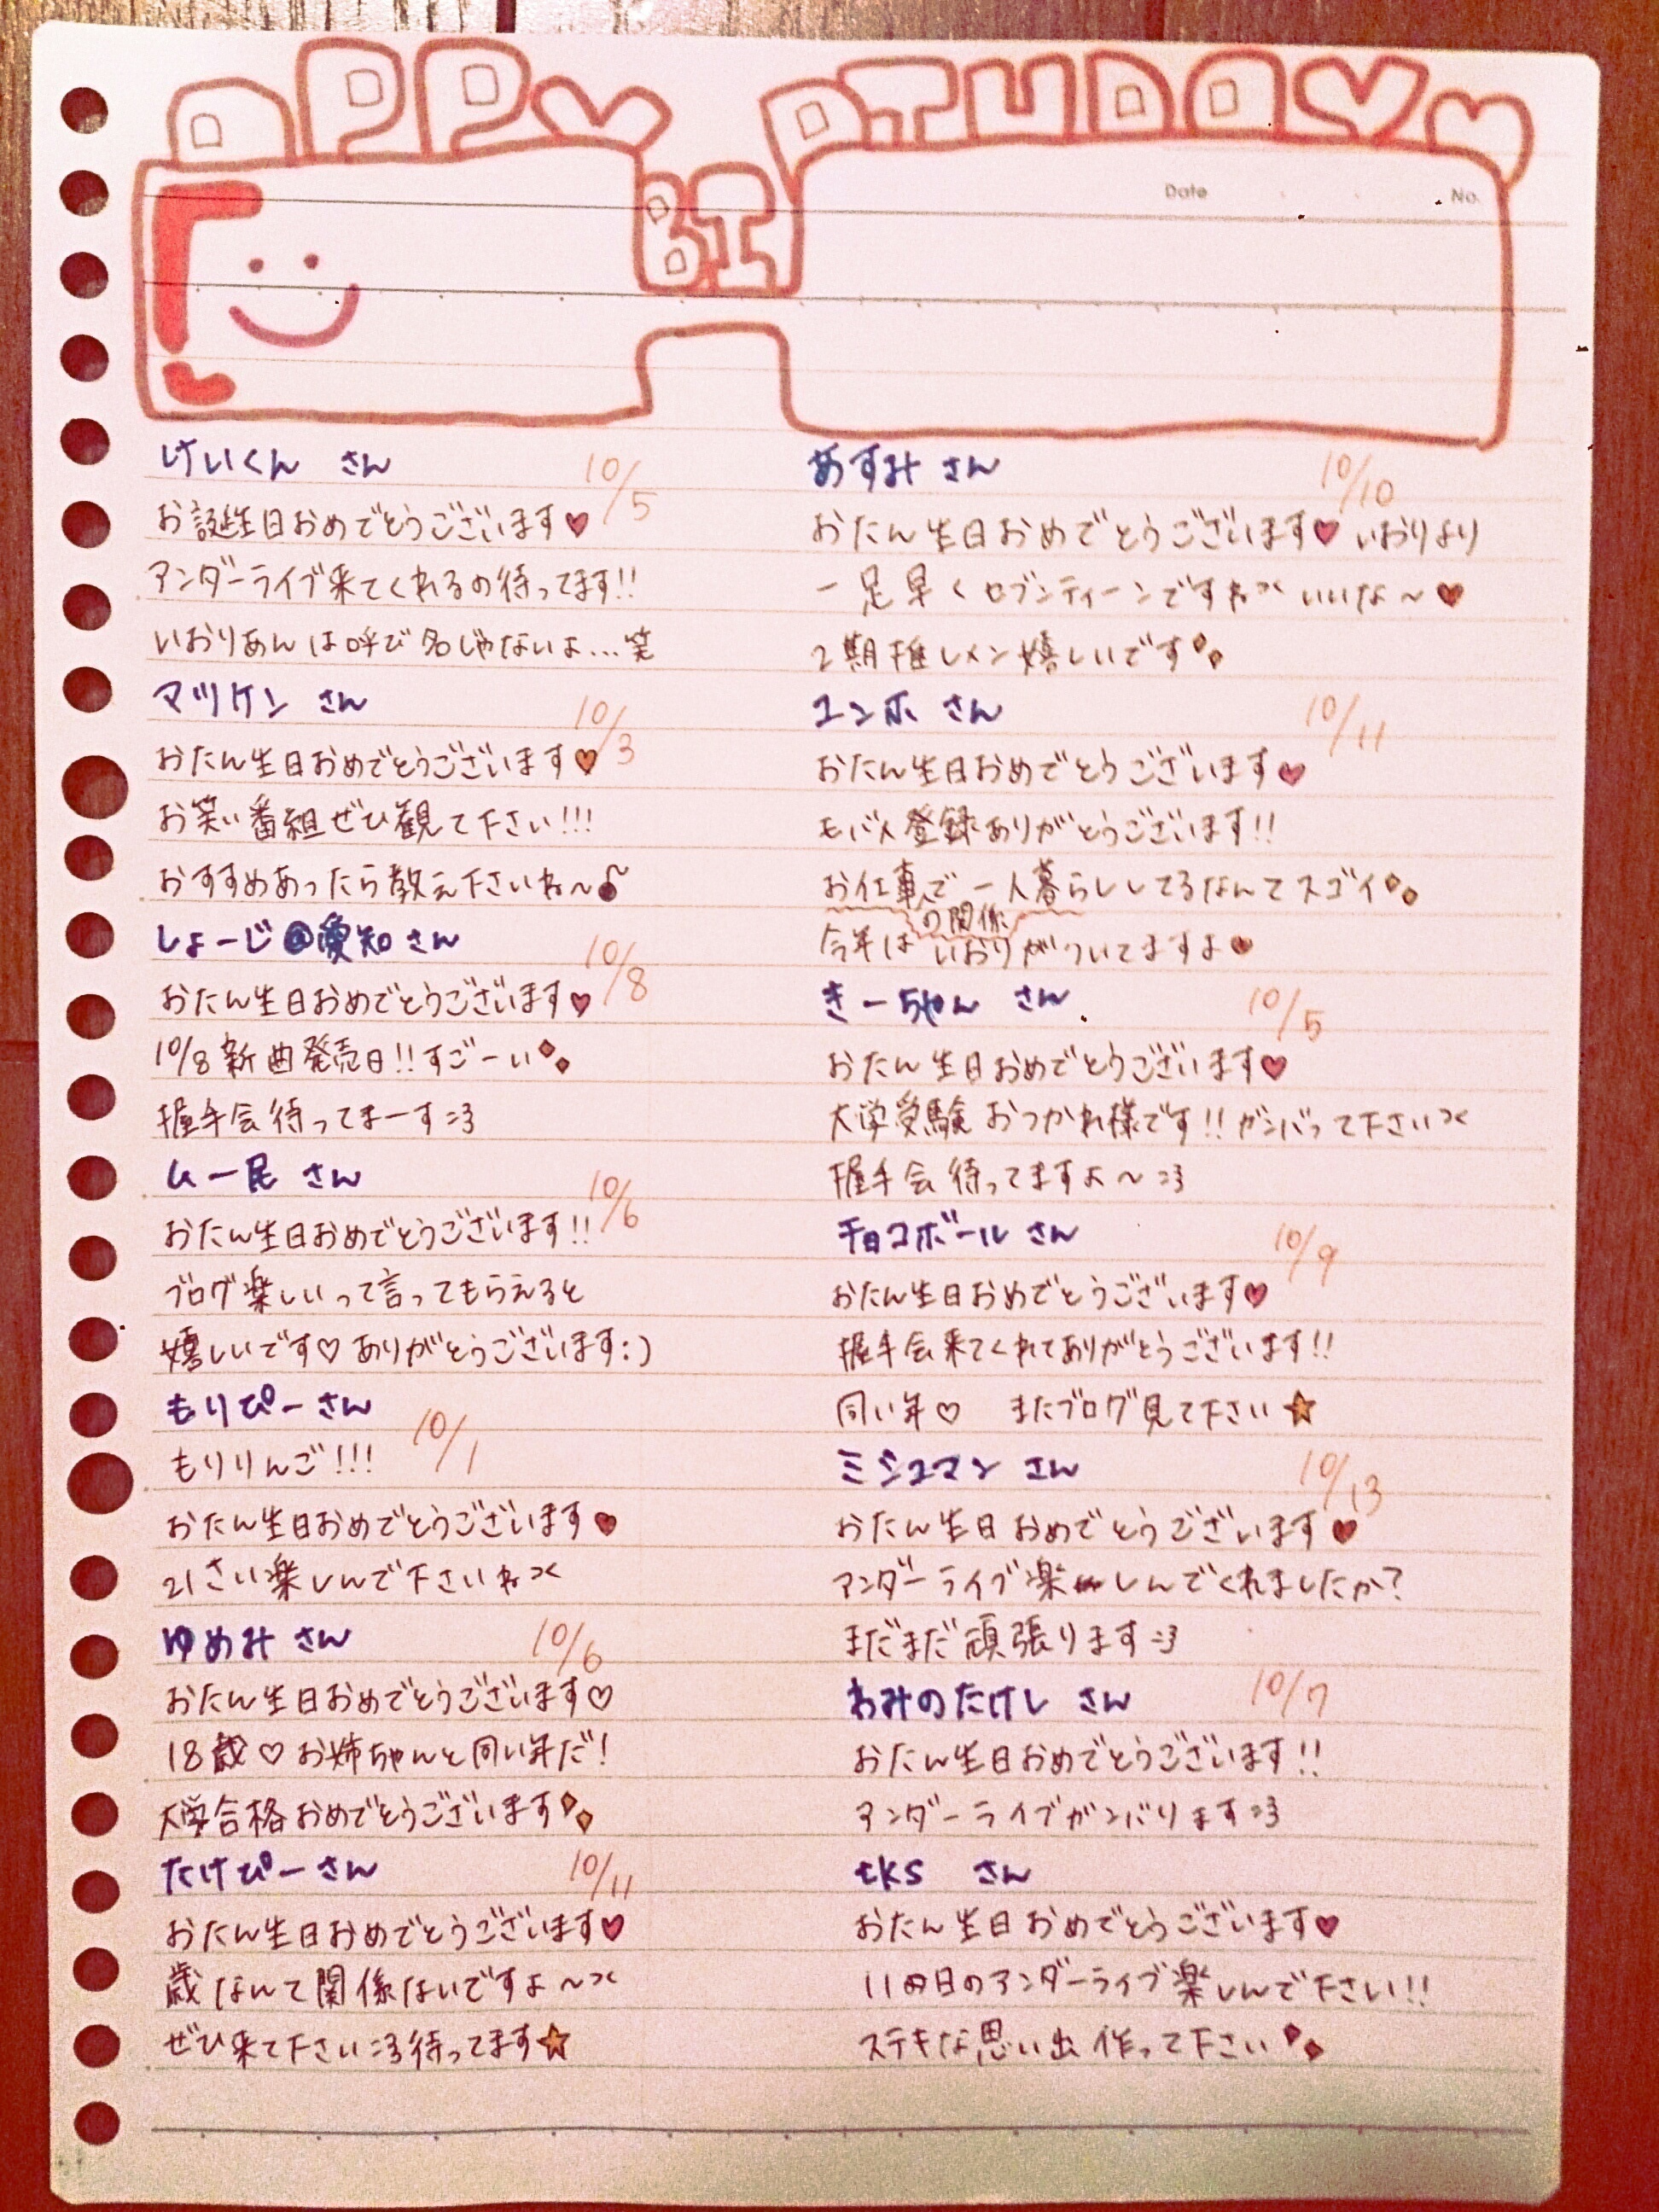 HAPPY BIRTHDAY
Date
No.
けいくん さん
10/5
お誕生日おめでとうございます♥
アンダーライブ来てくれるの待ってます!!
いおりあんは呼び名じゃないよ…笑
マツケン さん
10/3
おたん生日おめでとうございます♥
お笑い番組ぜひ観て下さい!!!
おすすめあったら教え下さいね〜
しょーじ@愛知さん
10/8
おたん生日おめでとうございます♥
10/8新曲発売日!!すごーい
握手会待ってまーす:3
ムー民 さん
10/6
おたん生日おめでとうございます!!
ブログ楽しいって言ってもらえると
嬉しいです♡ありがとうございます:)
もりぴーさん
10/1
もりりんご!!!
おたん生日おめでとうございます♥
21さい楽しんで下さいね
ゆめみさん
10/6
おたん生日おめでとうございます♡
18歳♡お姉ちゃんと同い年だ!
大学合格おめでとうございます
たけぴーさん
10/11
おたん生日おめでとうございます♥
歳なんて関係ないですよ〜
ぜひ来て下さい:3待ってます☆
あすみ さん
10/10
おたん生日おめでとうございます♥ いおりより
一足早くセブンティーンですね いいな〜♥
2期推しメン嬉しいです
ユンホ さん
10/11
おたん生日おめでとうございます♥
モバメ登録ありがとうございます!!
お仕事の関係で一人暮らししてるなんてスゴイ
今年はいおりがついてますよ♥
きーちゃん さん
10/5
おたん生日おめでとうございます♥
大学受験おつかれ様です!!ガンバって下さい
握手会待ってますよ〜:3
チョコボール さん
10/9
おたん生日おめでとうございます♥
握手会来てくれてありがとうございます!!
同い年♡ またブログ見て下さい☆
ミシュマン さん
10/13
おたん生日おめでとうございます♥
アンダーライブ楽しんでくれましたか?
まだまだ頑張ります:3
わみのたけし さん
10/7
おたん生日おめでとうございます!!
アンダーライブガンバります:3
tks さん
おたん生日おめでとうございます♥
11日のアンダーライブ楽しんで下さい!!
ステキな思い出作って下さい